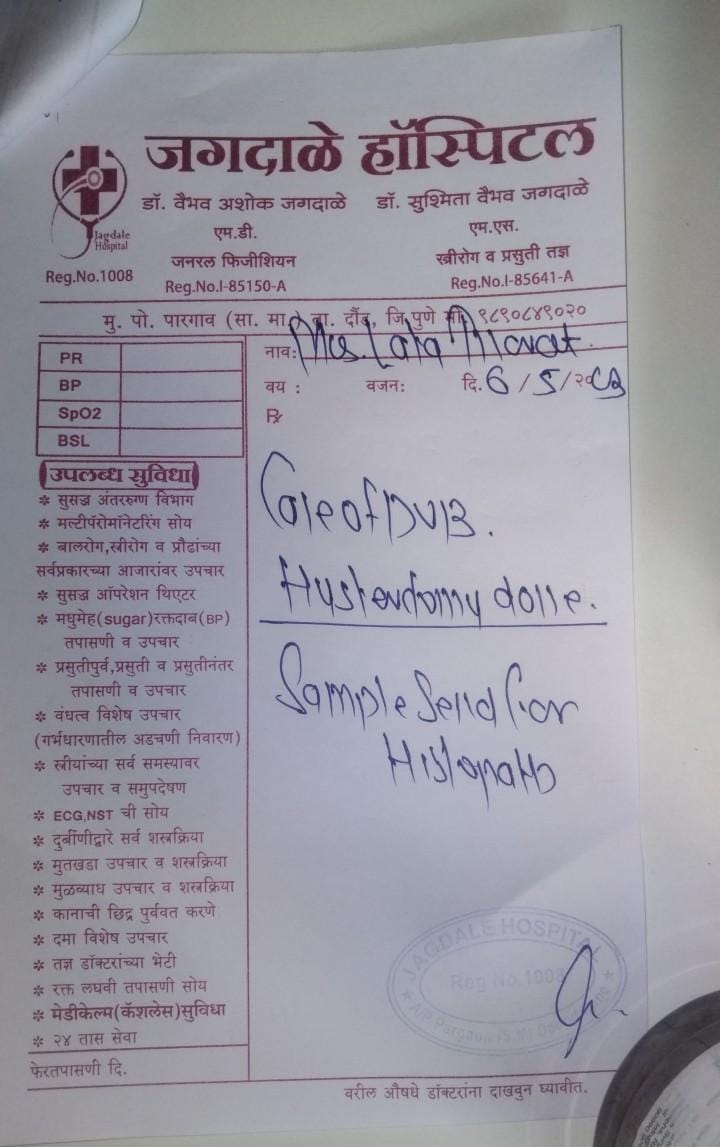 जगदाळे हॉस्पिटल
Jagdale
Hospital
डॉ. वैभव अशोक जगदाळे
एम.डी.
जनरल फिजीशियन
Reg.No.I-85150-A
डॉ. सुश्मिता वैभव जगदाळे
एम.एस.
स्त्रीरोग व प्रसुती तज्ञ
Reg.No.I-85641-A
Reg.No.1008
मु. पो. पारगाव (सा. मा.) ता. दौंड, जि.पुणे मो. ९८९०८४९०२०
नाव: Mrs. Lata
वय : वजन: दि. 6/5/२०
PR
BP
SpO2
BSL
उपलब्ध सुविधा
* सुसज्ज अंतररुग्ण विभाग
* मल्टीपॅरोमॉनेटरिंग सोय
* बालरोग,स्त्रीरोग व प्रौढांच्या
सर्वप्रकारच्या आजारांवर उपचार
* सुसज्ज ऑपरेशन थिएटर
* मधुमेह(sugar)रक्तदाब(BP)
तपासणी व उपचार
* प्रसुतीपुर्व,प्रसुती व प्रसुतीनंतर
तपासणी व उपचार
* वंधत्व विशेष उपचार
(गर्भधारणातील अडचणी निवारण)
* स्त्रीयांच्या सर्व समस्यावर
उपचार व समुपदेषण
* ECG,NST ची सोय
* दुर्बीणीद्वारे सर्व शस्त्रक्रिया
* मुतखडा उपचार व शस्त्रक्रिया
* मुळव्याध उपचार व शस्त्रक्रिया
* कानाची छिद्र पुर्ववत करणे
* दमा विशेष उपचार
* तज्ञ डॉक्टरांच्या भेटी
* रक्त लघवी तपासणी सोय
* मेडीकेल्म(कॅशलेस)सुविधा
* २४ तास सेवा
फेरतपासणी दि.
℞
Case of DUB.
Hysterectomy done.
Sample send for
Histopath
JAGDALE HOSPITAL
Reg No.1008
वरील औषधे डॉक्टरांना दाखवुन घ्यावीत.